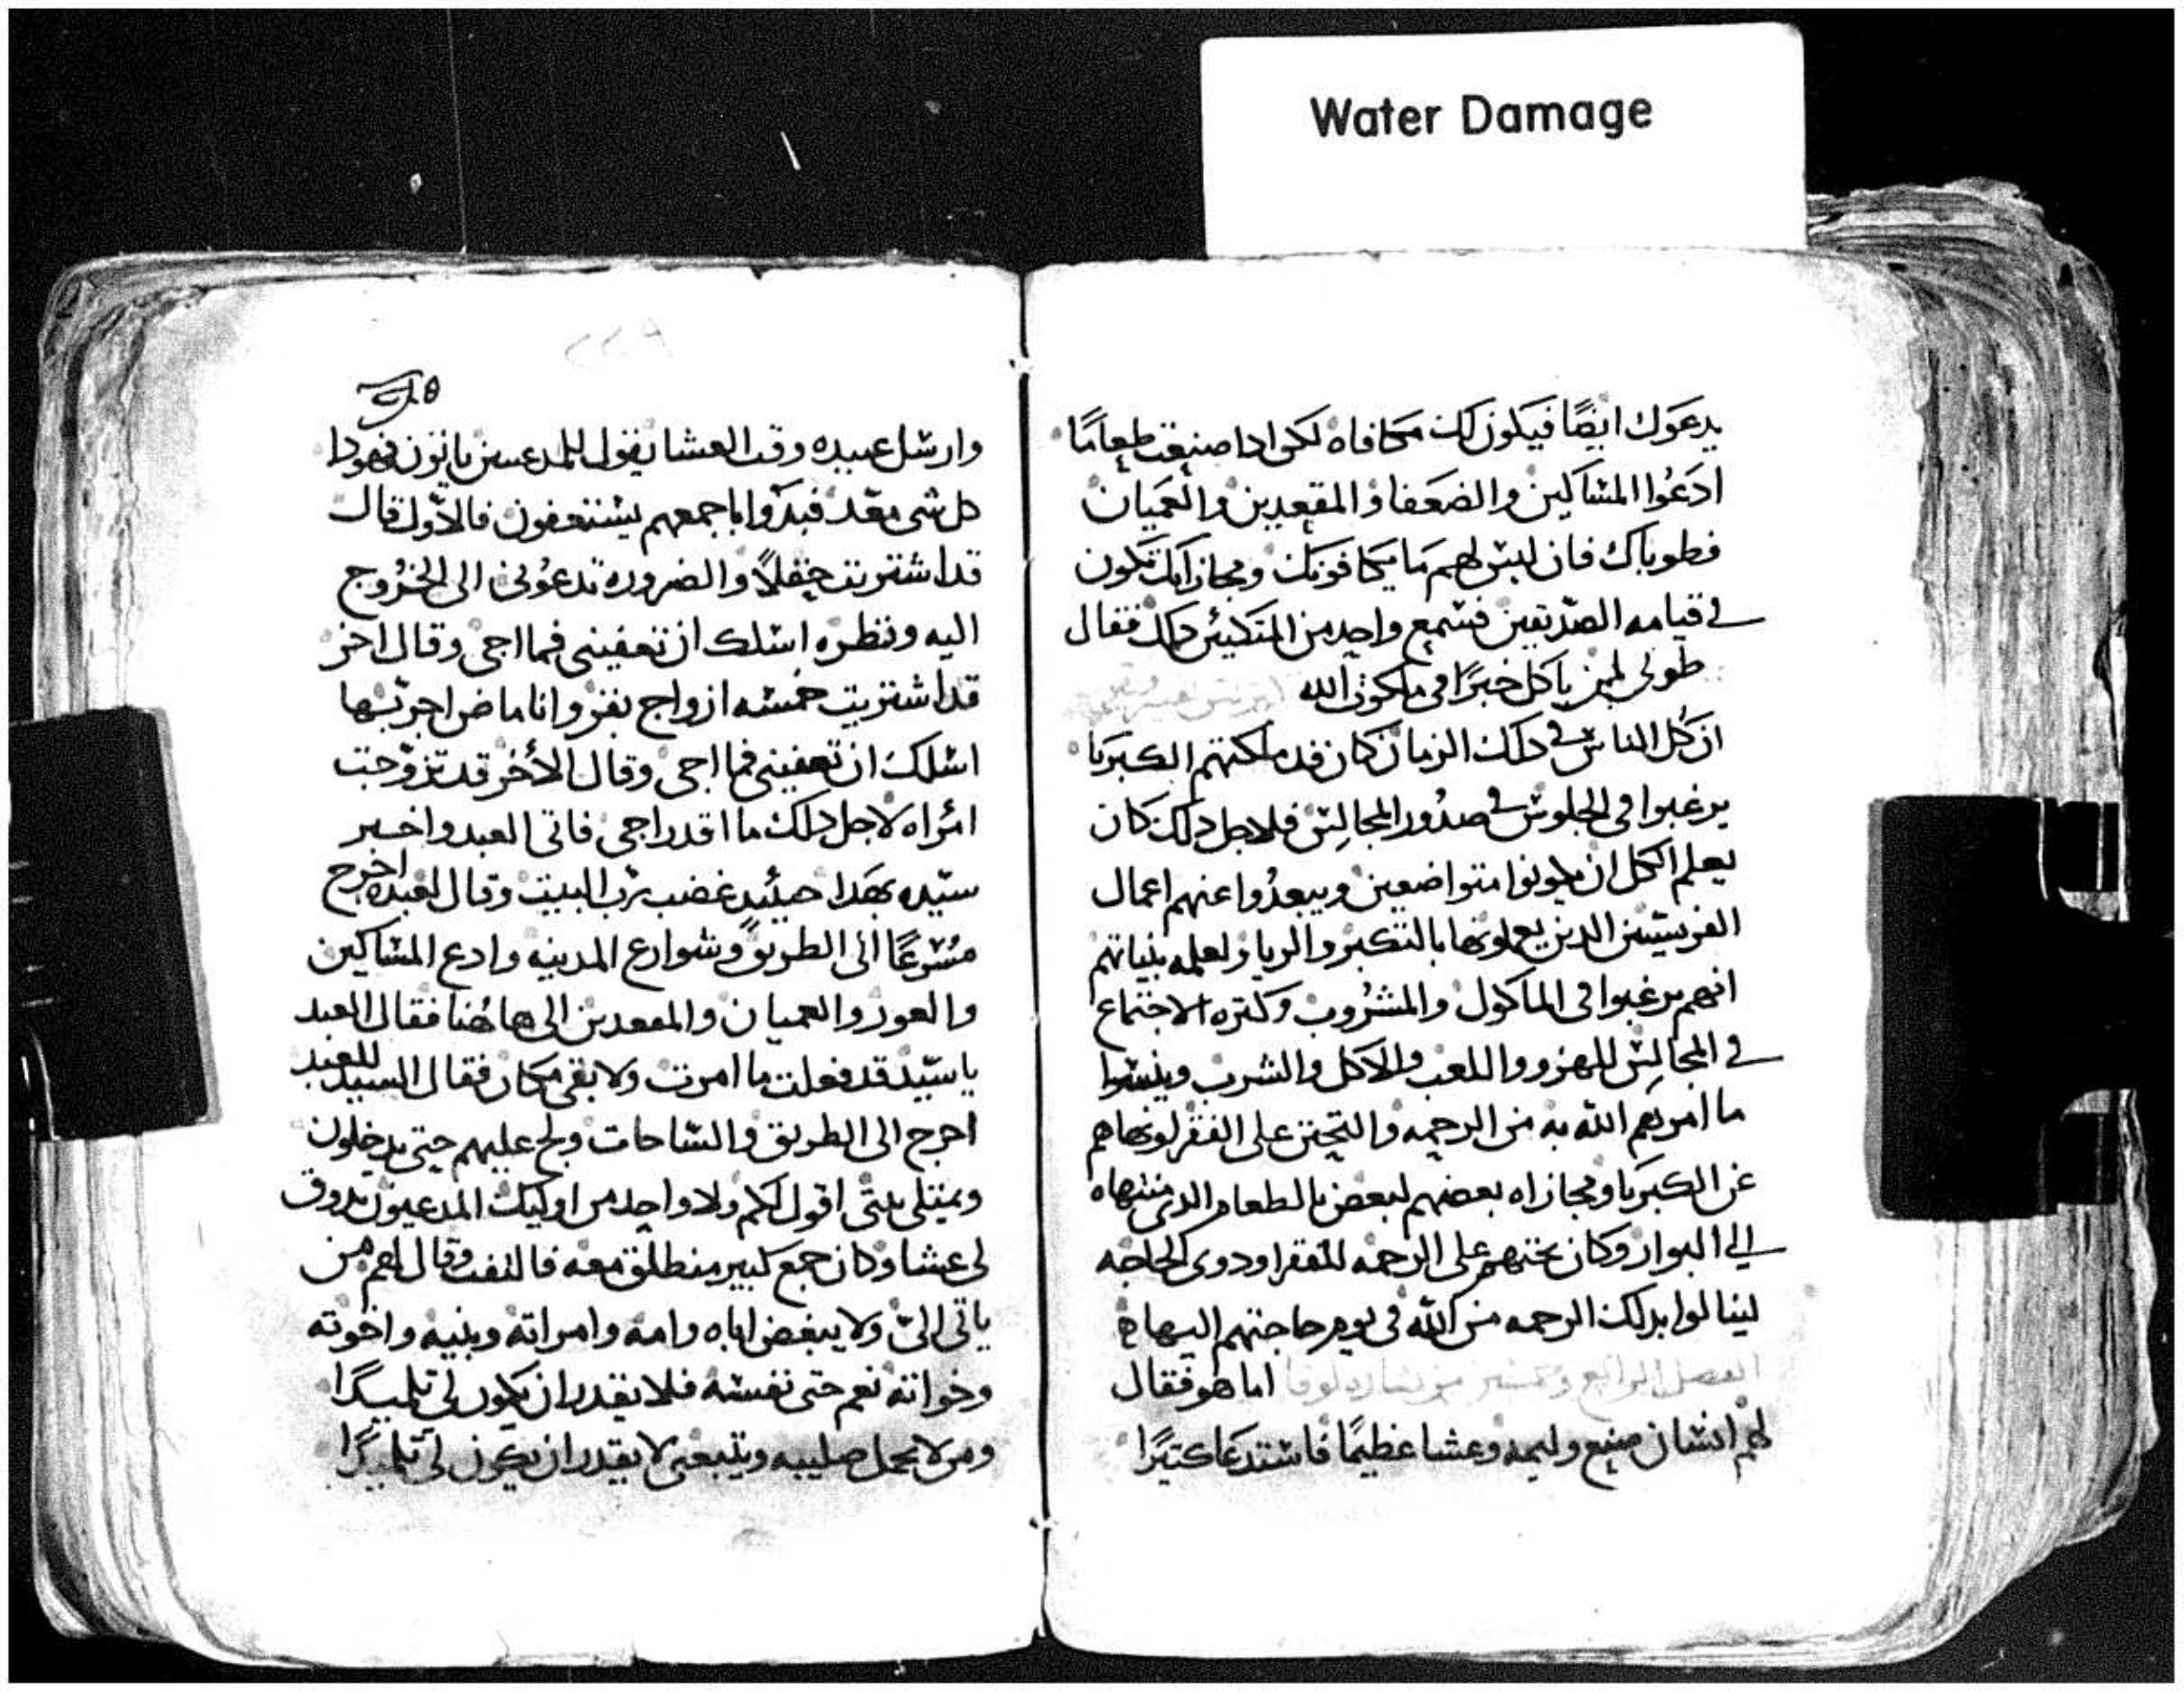 Water Damage
يدعوك ايضًا فيكون لك مكافاه لكى ادا صنعت طعامًا
ادعُوا المساكين والضعفا والمقعدين والعميان
فطوباك فان ليس لهم ما يكافونك ومجازاتك تكون
في قيامه الصديقين فسمع واحد من المتكيين دلك فقال
طوبى لمن ياكل خبزًا فى ملكوت الله
ان كل الناس في دلك الزمان كان قد ملكتهم الكبريا
يرغبوا فى الجلوس في صدور المجالس فلاجل دلك كان
يعلم الكل ان يكونوا متواضعين ويبعدُوا عنهم اعمال
الفريسيين الدين يعملونها بالتكبر والريا ولعلمه بنياتهم
انهم يرغبوا فى الماكول والمشروب وكتره الاجتماع
في المجالس للهزو واللعب والاكل والشرب وينسوا
ما امرهم الله به من الرحمه والتحنن على الفقر لونهاهم
عن الكبريا ومجازاه بعضهم لبعض بالطعام الدى منتهاه
الي البوار وكان يحتهم على الرحمه للفقرا ودوى الحاجه
لينالوا بدلك الرحمه من الله فى يوم حاجتهم اليها
الفصل الرابع وخمسين من بشاره لوقا اما هو فقال
لهم انسان صنع وليمه وعشا عظيمًا فاستدعا كتيرًا
٢٢٩
وارسل عبيده وقت العشا يقول للمدعيين ياتون فهودا
كل شى معد فبدوا باجمعهم يستعفون فالاول قال
قد اشتريت حقلاً والضروره تدعونى الى الخروج
اليه ونظره اسلك ان تعفينى فما اجى وقال اخر
قد اشتريت خمسه ازواج بقر وانا ماض اجربها
اسلك ان تعفينى فما اجى وقال الاخر قد تزوجت
امراه لاجل دلك ما اقدر اجى فاتى العبد واخبر
سيده بهدا حينيد غضب رب البيت وقال لعبده اخرج
مسرعًا الى الطريق وشوارع المدينه وادع المساكين
والعور والعميان والمقعدين الى هاهُنا فقال العبد
يا سيد قد فعلت ما امرت ولا بقى مكان فقال السيد للعبد
اخرج الى الطريق والساحات ولج عليهم حتى يدخلون
ويمتلى بيتى اقول لكم ولا واحد من اوليك المدعيون يدوق
لى عشا وكان جمع كبير منطلق معه فالتفت وقال لهم من
ياتى الىّ ولا يبغض اباه وامه وامراته وبنيه واخوته
وخواته نعم حتى نفسه فلا يقدر ان يكون لى تلميدًا
ومن لا يحمل صليبه ويتبعنى لا يقدر ان يكون لى تلميدًا